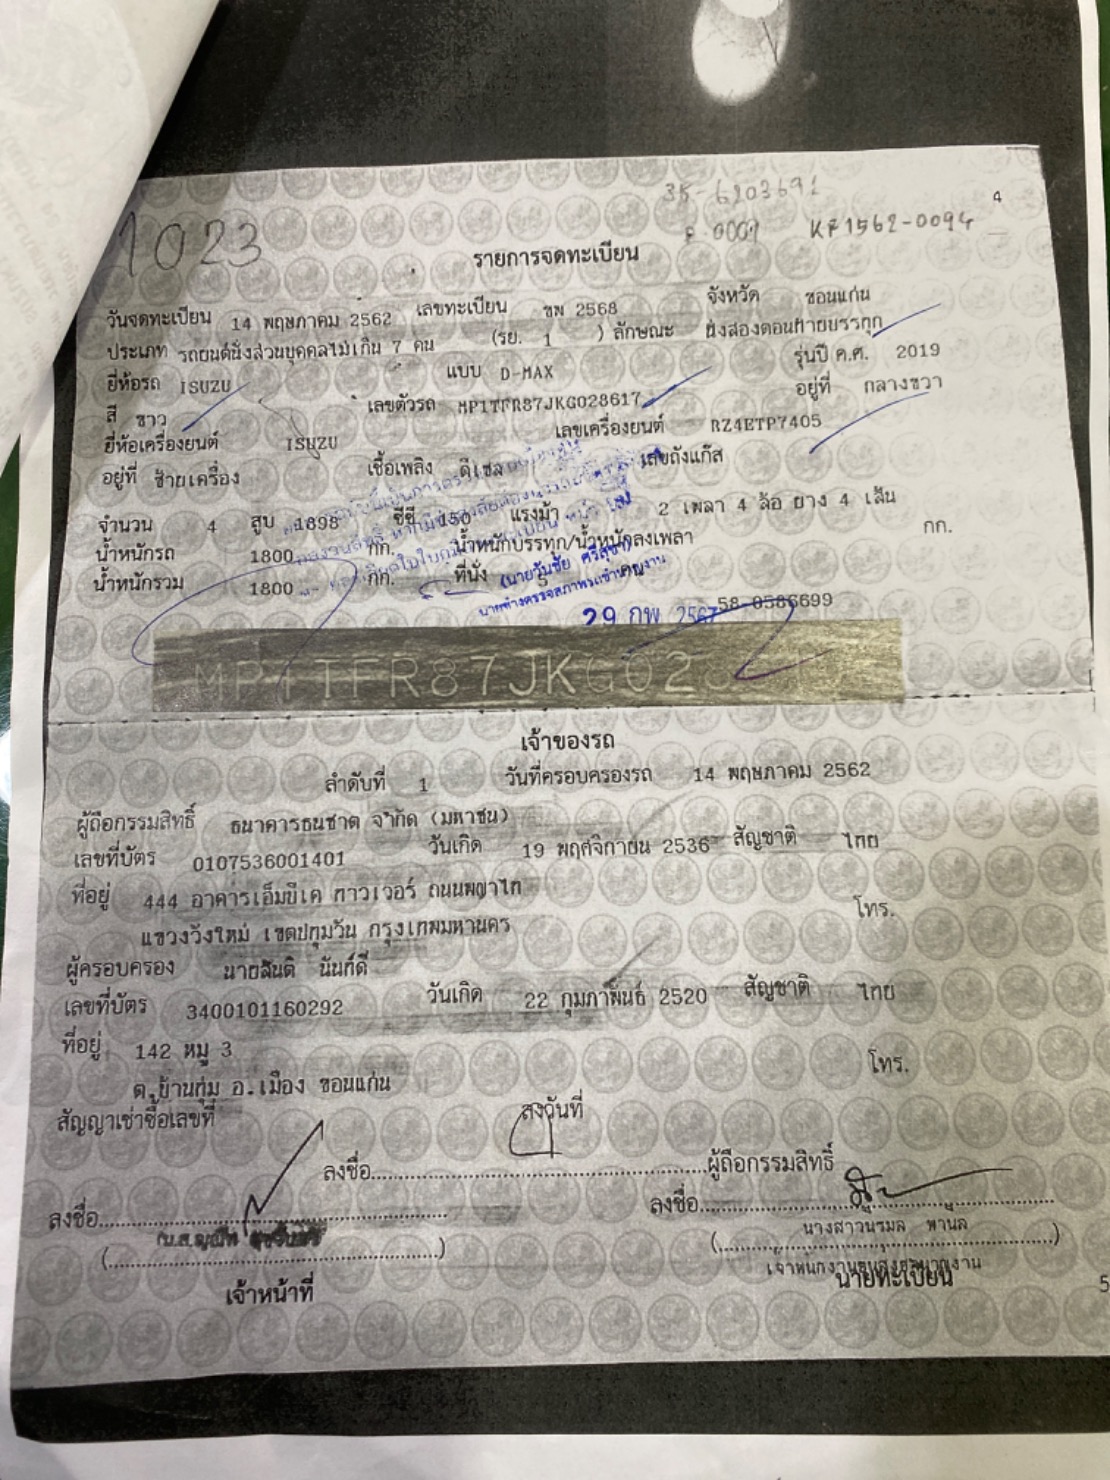 35-6203691
4
1023
P 0009 KF1562-0094
รายการจดทะเบียน
วันจดทะเบียน 14 พฤษภาคม 2562 เลขทะเบียน ขพ 2568 จังหวัด ขอนแก่น
ประเภท รถยนต์นั่งส่วนบุคคลไม่เกิน 7 คน (รย. 1 ) ลักษณะ นั่งสองตอนท้ายบรรทุก
ยี่ห้อรถ ISUZU แบบ D-MAX รุ่นปี ค.ศ. 2019
สี ขาว เลขตัวรถ MP1TFR87JKG028617 อยู่ที่ กลางขวา
ยี่ห้อเครื่องยนต์ ISUZU เลขเครื่องยนต์ RZ4ETP7405
อยู่ที่ ซ้ายเครื่อง เชื้อเพลิง ดีเซล เลขถังแก๊ส
จำนวน 4 สูบ 1898 ซีซี 150 แรงม้า 2 เพลา 4 ล้อ ยาง 4 เส้น
น้ำหนักรถ 1800 กก. น้ำหนักบรรทุก/น้ำหนักลงเพลา กก.
น้ำหนักรวม 1800 กก. ที่นั่ง 5 คน
(นายวันชัย ศรีสุชา)
นายช่างตรวจสภาพรถชำนาญงาน
29 กพ 2567
58-0586699
MP1TFR87JKG028
เจ้าของรถ
ลำดับที่ 1 วันที่ครอบครองรถ 14 พฤษภาคม 2562
ผู้ถือกรรมสิทธิ์ ธนาคารธนชาต จำกัด (มหาชน)
เลขที่บัตร 0107536001401 วันเกิด 19 พฤศจิกายน 2536 สัญชาติ ไทย
ที่อยู่ 444 อาคารเอ็มบีเค ทาวเวอร์ ถนนพญาไท โทร.
แขวงวังใหม่ เขตปทุมวัน กรุงเทพมหานคร
ผู้ครอบครอง นายสันติ นันท์ดี
เลขที่บัตร 3400101160292 วันเกิด 22 กุมภาพันธ์ 2520 สัญชาติ ไทย
ที่อยู่ 142 หมู่ 3 โทร.
ต.บ้านทุ่ม อ.เมือง ขอนแก่น
สัญญาเช่าซื้อเลขที่ ลงวันที่
ลงชื่อ ผู้ถือกรรมสิทธิ์
ลงชื่อ ลงชื่อ
นางสาวนรมล
เจ้าพนักงานขนส่งชำนาญงาน
เจ้าหน้าที่ นายทะเบียน
5